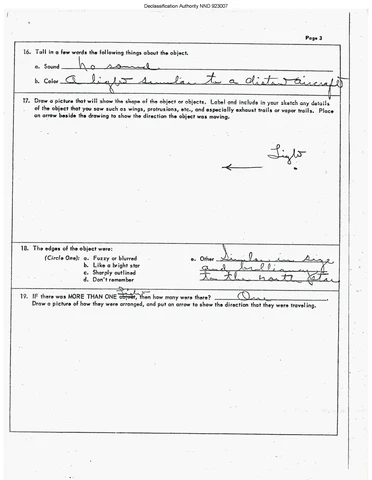 Declassification Authority NND 923007
Page 3
16. Tell in a few words the following things about the object.
a. Sound no sound
b. Color A light similar to a distant aircraft
17. Draw a picture that will show the shape of the object or objects. Label and include in your sketch any details
of the object that you saw such as wings, protrusions, etc., and especially exhaust trails or vapor trails. Place
an arrow beside the drawing to show the direction the object was moving.
Light
18. The edges of the object were:
(Circle One): a. Fuzzy or blurred
b. Like a bright star
c. Sharply outlined
d. Don't remember
e. Other Similar in size
and brilliancy
to the north star
19. IF there was MORE THAN ONE object, then how many were there? One
Draw a picture of how they were arranged, and put an arrow to show the direction that they were traveling.